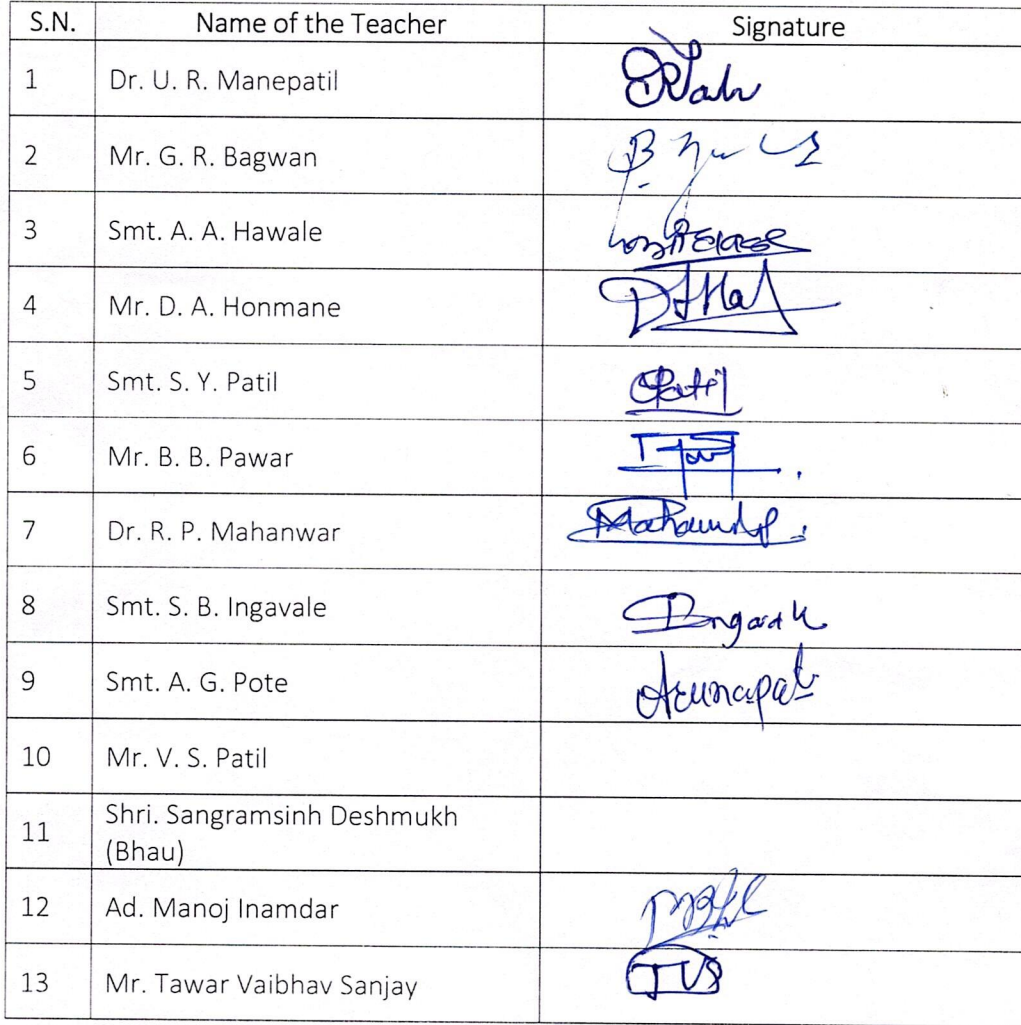 S.N. Name of the Teacher Signature
1 Dr. U. R. Manepatil
2 Mr. G. R. Bagwan
3 Smt. A. A. Hawale
4 Mr. D. A. Honmane
5 Smt. S. Y. Patil Patil
6 Mr. B. B. Pawar
7 Dr. R. P. Mahanwar
8 Smt. S. B. Ingavale
9 Smt. A. G. Pote
10 Mr. V. S. Patil
11 Shri. Sangramsinh Deshmukh
(Bhau)
12 Ad. Manoj Inamdar
13 Mr. Tawar Vaibhav Sanjay TVS